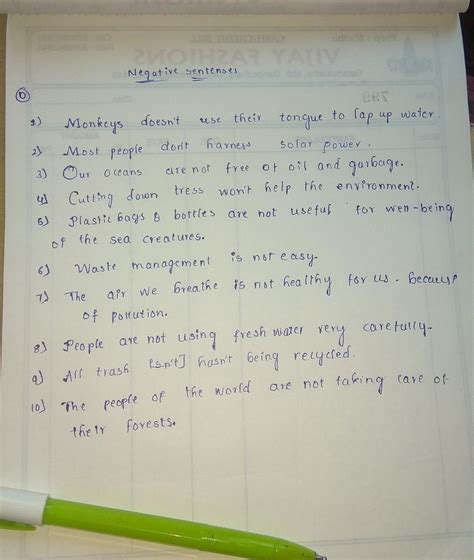 Negative sentenses
1) Monkeys doesn't use their tongue to lap up water.
2) Most people don't harness solar power.
3) Our oceans are not free of oil and garbage.
4) Cutting down tress won't help the environment.
5) Plastic bags & bottles are not useful for well-being
of the sea creatures.
6) Waste management is not easy.
7) The air we breathe is not healthy for us. because
of pollution.
8) People are not using fresh water very carefully.
9) All trash [isn't] hasn't being recycled.
10) The people of the world are not taking care of
their forests.
VIJAY FASHIONS
799